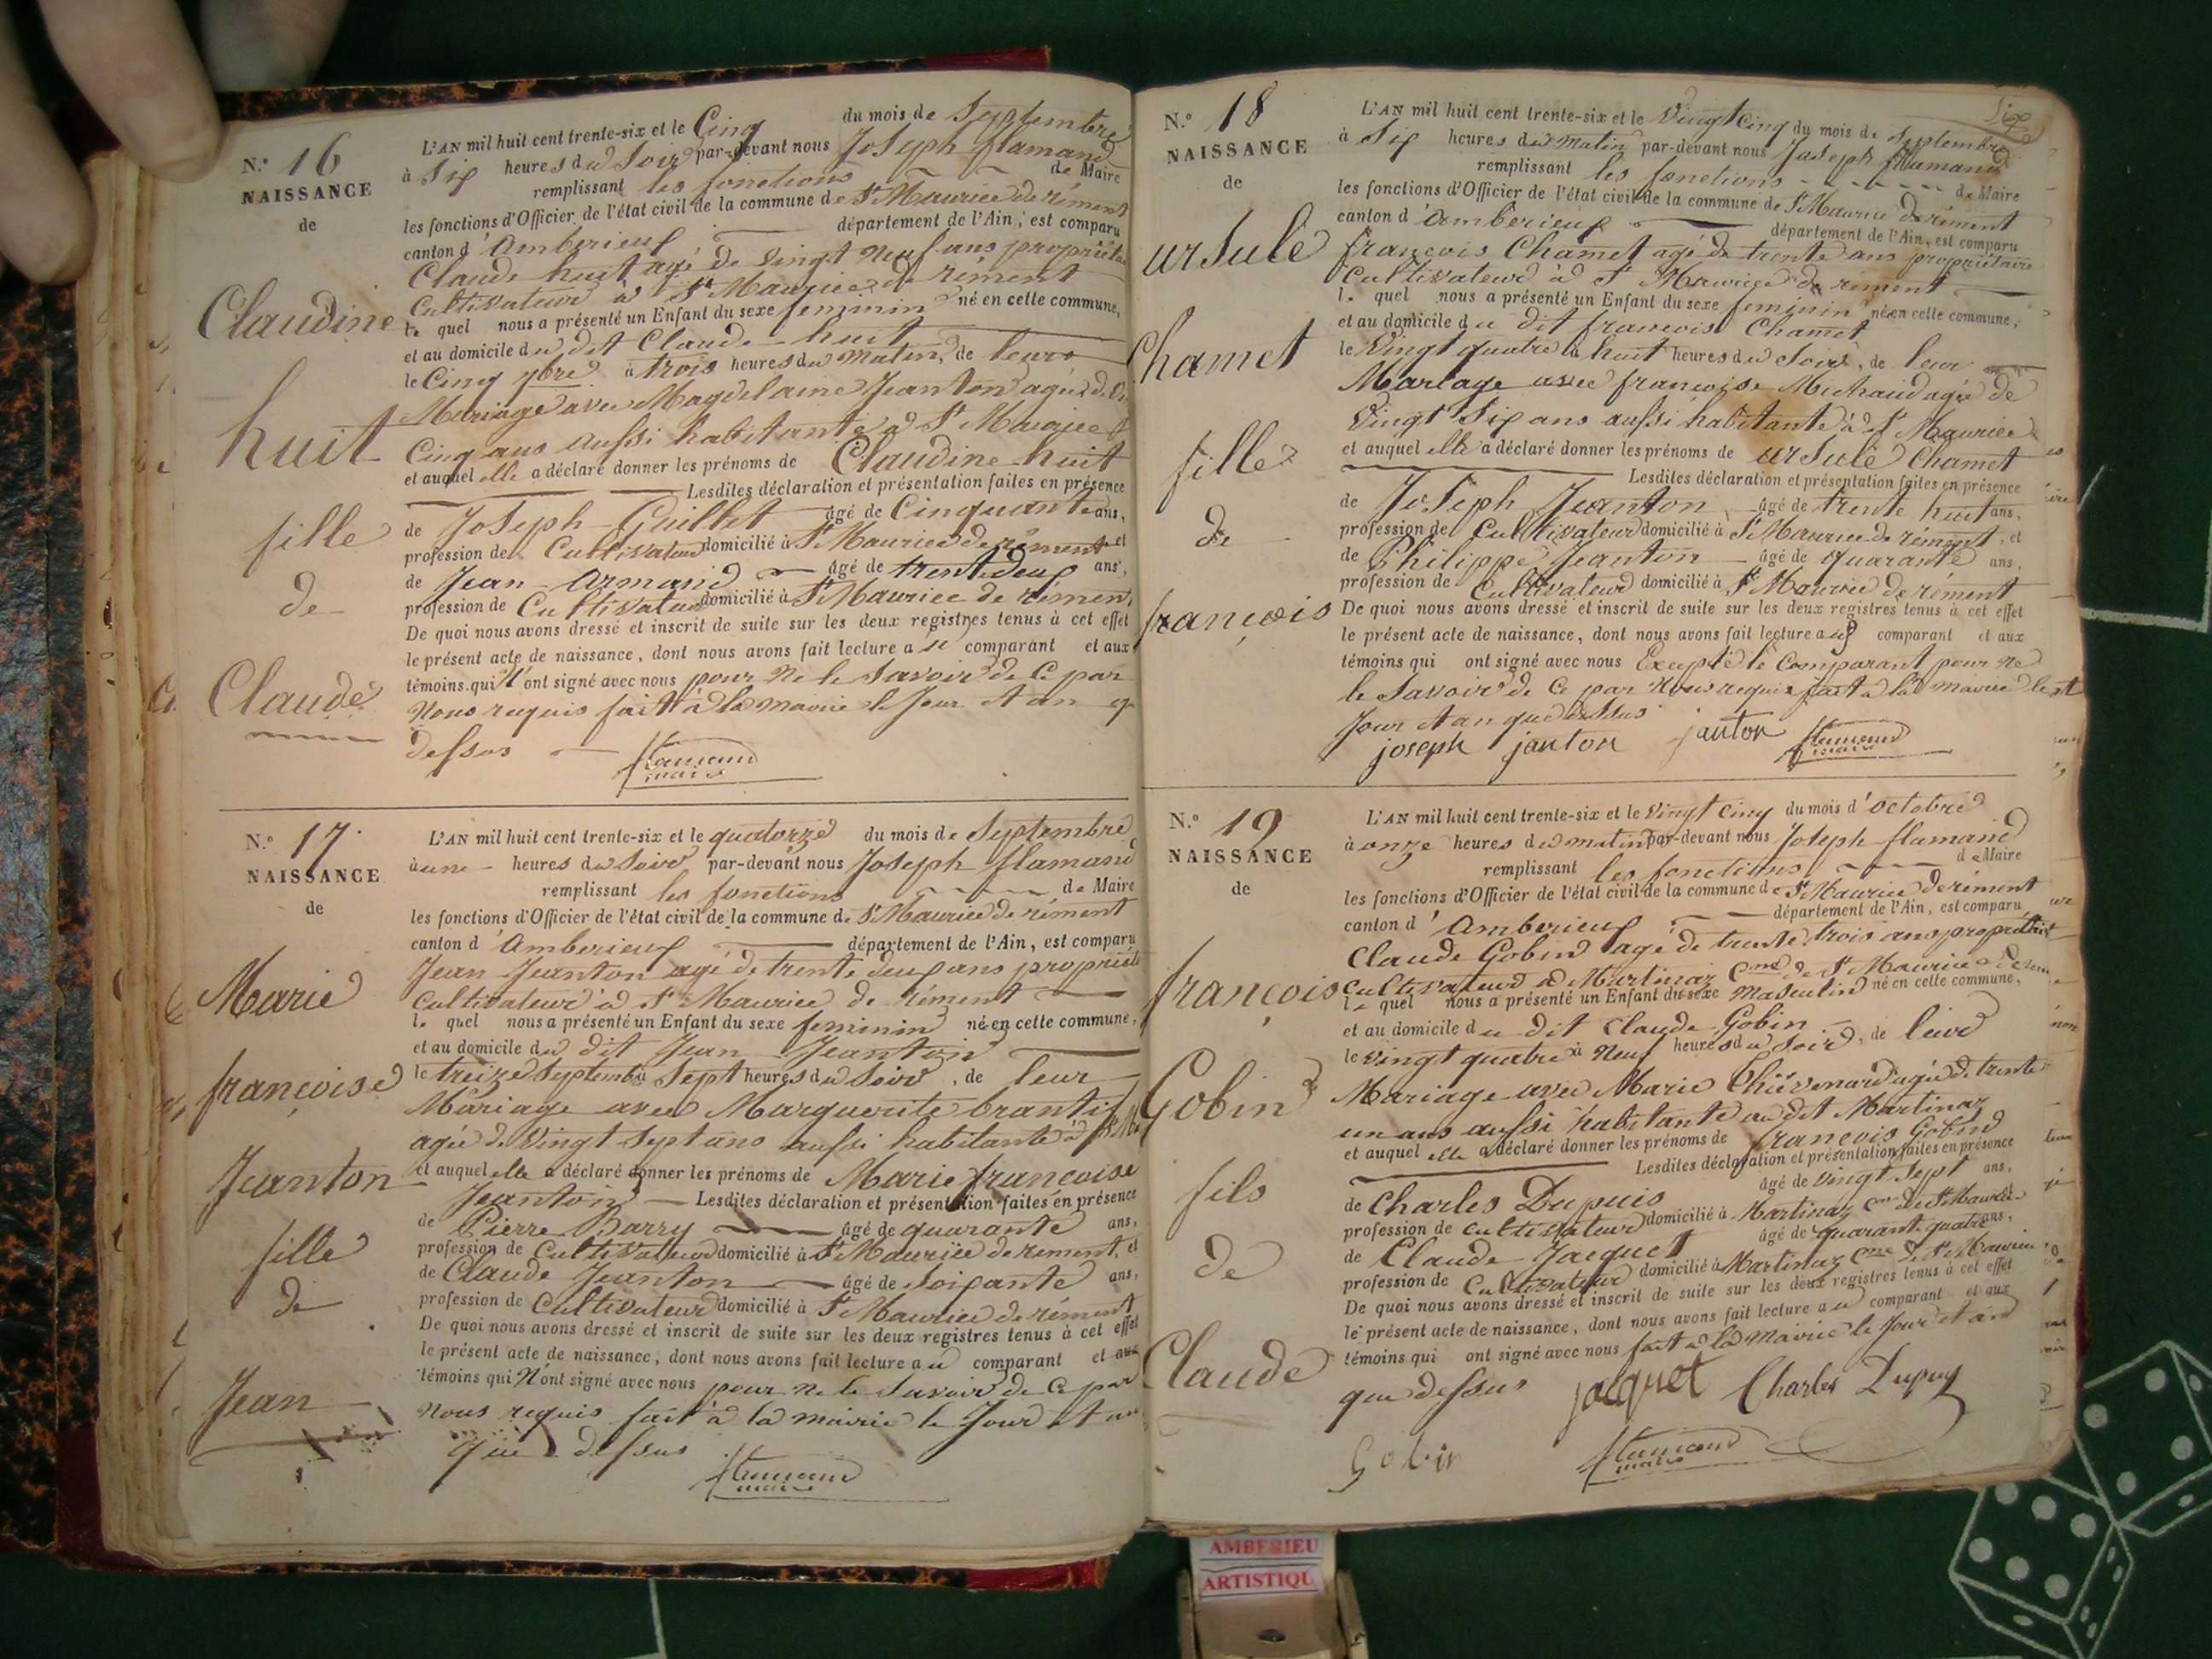 N.° 16
NAISSANCE
de
Claudine
huit
fille
de
Claude
L'AN mil huit cent trente-six et le Cinq du mois de Septembre
à Six heures du Soir par-devant nous Joseph flamand
remplissant les fonctions de Maire
les fonctions d'Officier de l'état civil de la commune de St Maurice de rément
canton d'Amberieux département de l'Ain, est comparu
Claude huit agé de vingt neuf ans propriétai
Cultivateur à St Maurice de rément
le quel nous a présenté un Enfant du sexe feminin né en cette commune,
et au domicile du dit Claude huit
le Cinq 7bre à trois heures du Matin, de leur
Mariage avec Magdelaine Jeanton agée de
Cinq ans aussi habitante à St Maurice
et auquel elle a déclaré donner les prénoms de Claudine huit
Lesdites déclaration et présentation faites en présence
de Joseph Guillet âgé de Cinquante ans,
profession de Cultivateur domicilié à St Maurice de rément et
de Jean Armand âgé de trente deux ans,
profession de Cultivateur domicilié à St Maurice de rément,
De quoi nous avons dressé et inscrit de suite sur les deux registres tenus à cet effet
le présent acte de naissance, dont nous avons fait lecture a u comparant et aux
témoins qui n'ont signé avec nous pour ne le Savoir de Ce par
Nous requis fait à la mairie le Jour et an q
dessus
flamand
maire
N.° 17
NAISSANCE
de
Marie
françoise
Jeanton
fille
de
Jean
L'AN mil huit cent trente-six et le quatorze du mois de Septembre
à une heures du Soir par-devant nous Joseph flamand
remplissant les fonctions de Maire
les fonctions d'Officier de l'état civil de la commune de St Maurice de rément
canton d'Amberieux département de l'Ain, est comparu
Jean Jeanton agé de trente deux ans propriét
Cultivateur à St Maurice de rément
le quel nous a présenté un Enfant du sexe feminin né en cette commune,
et au domicile du dit Jean Jeanton
le treize Septembre à Sept heures du Soir, de leur
Mariage avec Marguerite
agée de vingt Sept ans aussi habitante à St
et auquel elle a déclaré donner les prénoms de Marie françoise
Jeanton Lesdites déclaration et présentation faites en présence
de Pierre Barry âgé de quarante ans,
profession de Cultivateur domicilié à St Maurice de rément, et
de Claude Jeanton âgé de soixante ans,
profession de Cultivateur domicilié à St Maurice de rément
De quoi nous avons dressé et inscrit de suite sur les deux registres tenus à cet effet
le présent acte de naissance, dont nous avons fait lecture a u comparant et aux
témoins qui N'ont signé avec nous pour ne le Savoir de Ce par
Nous requis fait à la mairie le Jour et an
que dessus
flamand
maire
N.° 18
NAISSANCE
de
urSule
Chamet
fille
de
françois
L'AN mil huit cent trente-six et le Vingt Cinq du mois de Septembre
à Six heures du matin par-devant nous Joseph flamand
remplissant les fonctions de Maire
les fonctions d'Officier de l'état civil de la commune de St Maurice de rément
canton d'Amberieux département de l'Ain, est comparu
françois Chamet agé de trente ans propriétaire
Cultivateur à St Maurice de rément
le quel nous a présenté un Enfant du sexe feminin né en cette commune,
et au domicile du dit françois Chamet
le Vingt quatre à huit heures du Soir, de leur
Mariage avec françoise Michaud agée de
Vingt Six ans aussi habitante à St Maurice
et auquel elle a déclaré donner les prénoms de urSule Chamet
Lesdites déclaration et présentation faites en présence
de Joseph Jeanton âgé de trente huit ans,
profession de Cultivateur domicilié à St Maurice de rément, et
de Philippe Jeanton âgé de quarante ans,
profession de Cultivateur domicilié à St Maurice de rément
De quoi nous avons dressé et inscrit de suite sur les deux registres tenus à cet effet
le présent acte de naissance, dont nous avons fait lecture a u comparant et aux
témoins qui ont signé avec nous Excepté le Comparant pour ne
le Savoir de Ce par Nous requis fait à la mairie le
Jour et an que dessus
joseph janton janton flamand
maire
N.° 19
NAISSANCE
de
françois
Gobin
fils
de
Claude
L'AN mil huit cent trente-six et le Vingt Cinq du mois d'octobre
à onze heures du matin par-devant nous Joseph flamand
remplissant les fonctions de Maire
les fonctions d'Officier de l'état civil de la commune de St Maurice de rément
canton d'Amberieux département de l'Ain, est comparu
Claude Gobin agé de trente trois ans
Cultivateur à Martinaz Cne de St Maurice de
le quel nous a présenté un Enfant du sexe Masculin né en cette commune,
et au domicile du dit Claude Gobin
le vingt quatre à Neuf heures du Soir, de leur
Mariage avec Marie agée de trente
un ans aussi habitante au dit Martinaz
et auquel elle a déclaré donner les prénoms de françois Gobin
Lesdites déclaration et présentation faites en présence
de Charles Dupuis âgé de vingt Sept ans,
profession de Cultivateur domicilié à Martinaz Cne de St Maurice
de Claude Jacquet âgé de quarante quatre ans,
profession de Cultivateur domicilié à Martinaz Cne de St Maurice
De quoi nous avons dressé et inscrit de suite sur les deux registres tenus à cet effet
le présent acte de naissance, dont nous avons fait lecture a u comparant et aux
témoins qui ont signé avec nous fait à la Mairie le Jour et an
que dessus jacquet Charles Dupuy
Gobin flamand
maire
AMBERIEU
ARTISTIQU